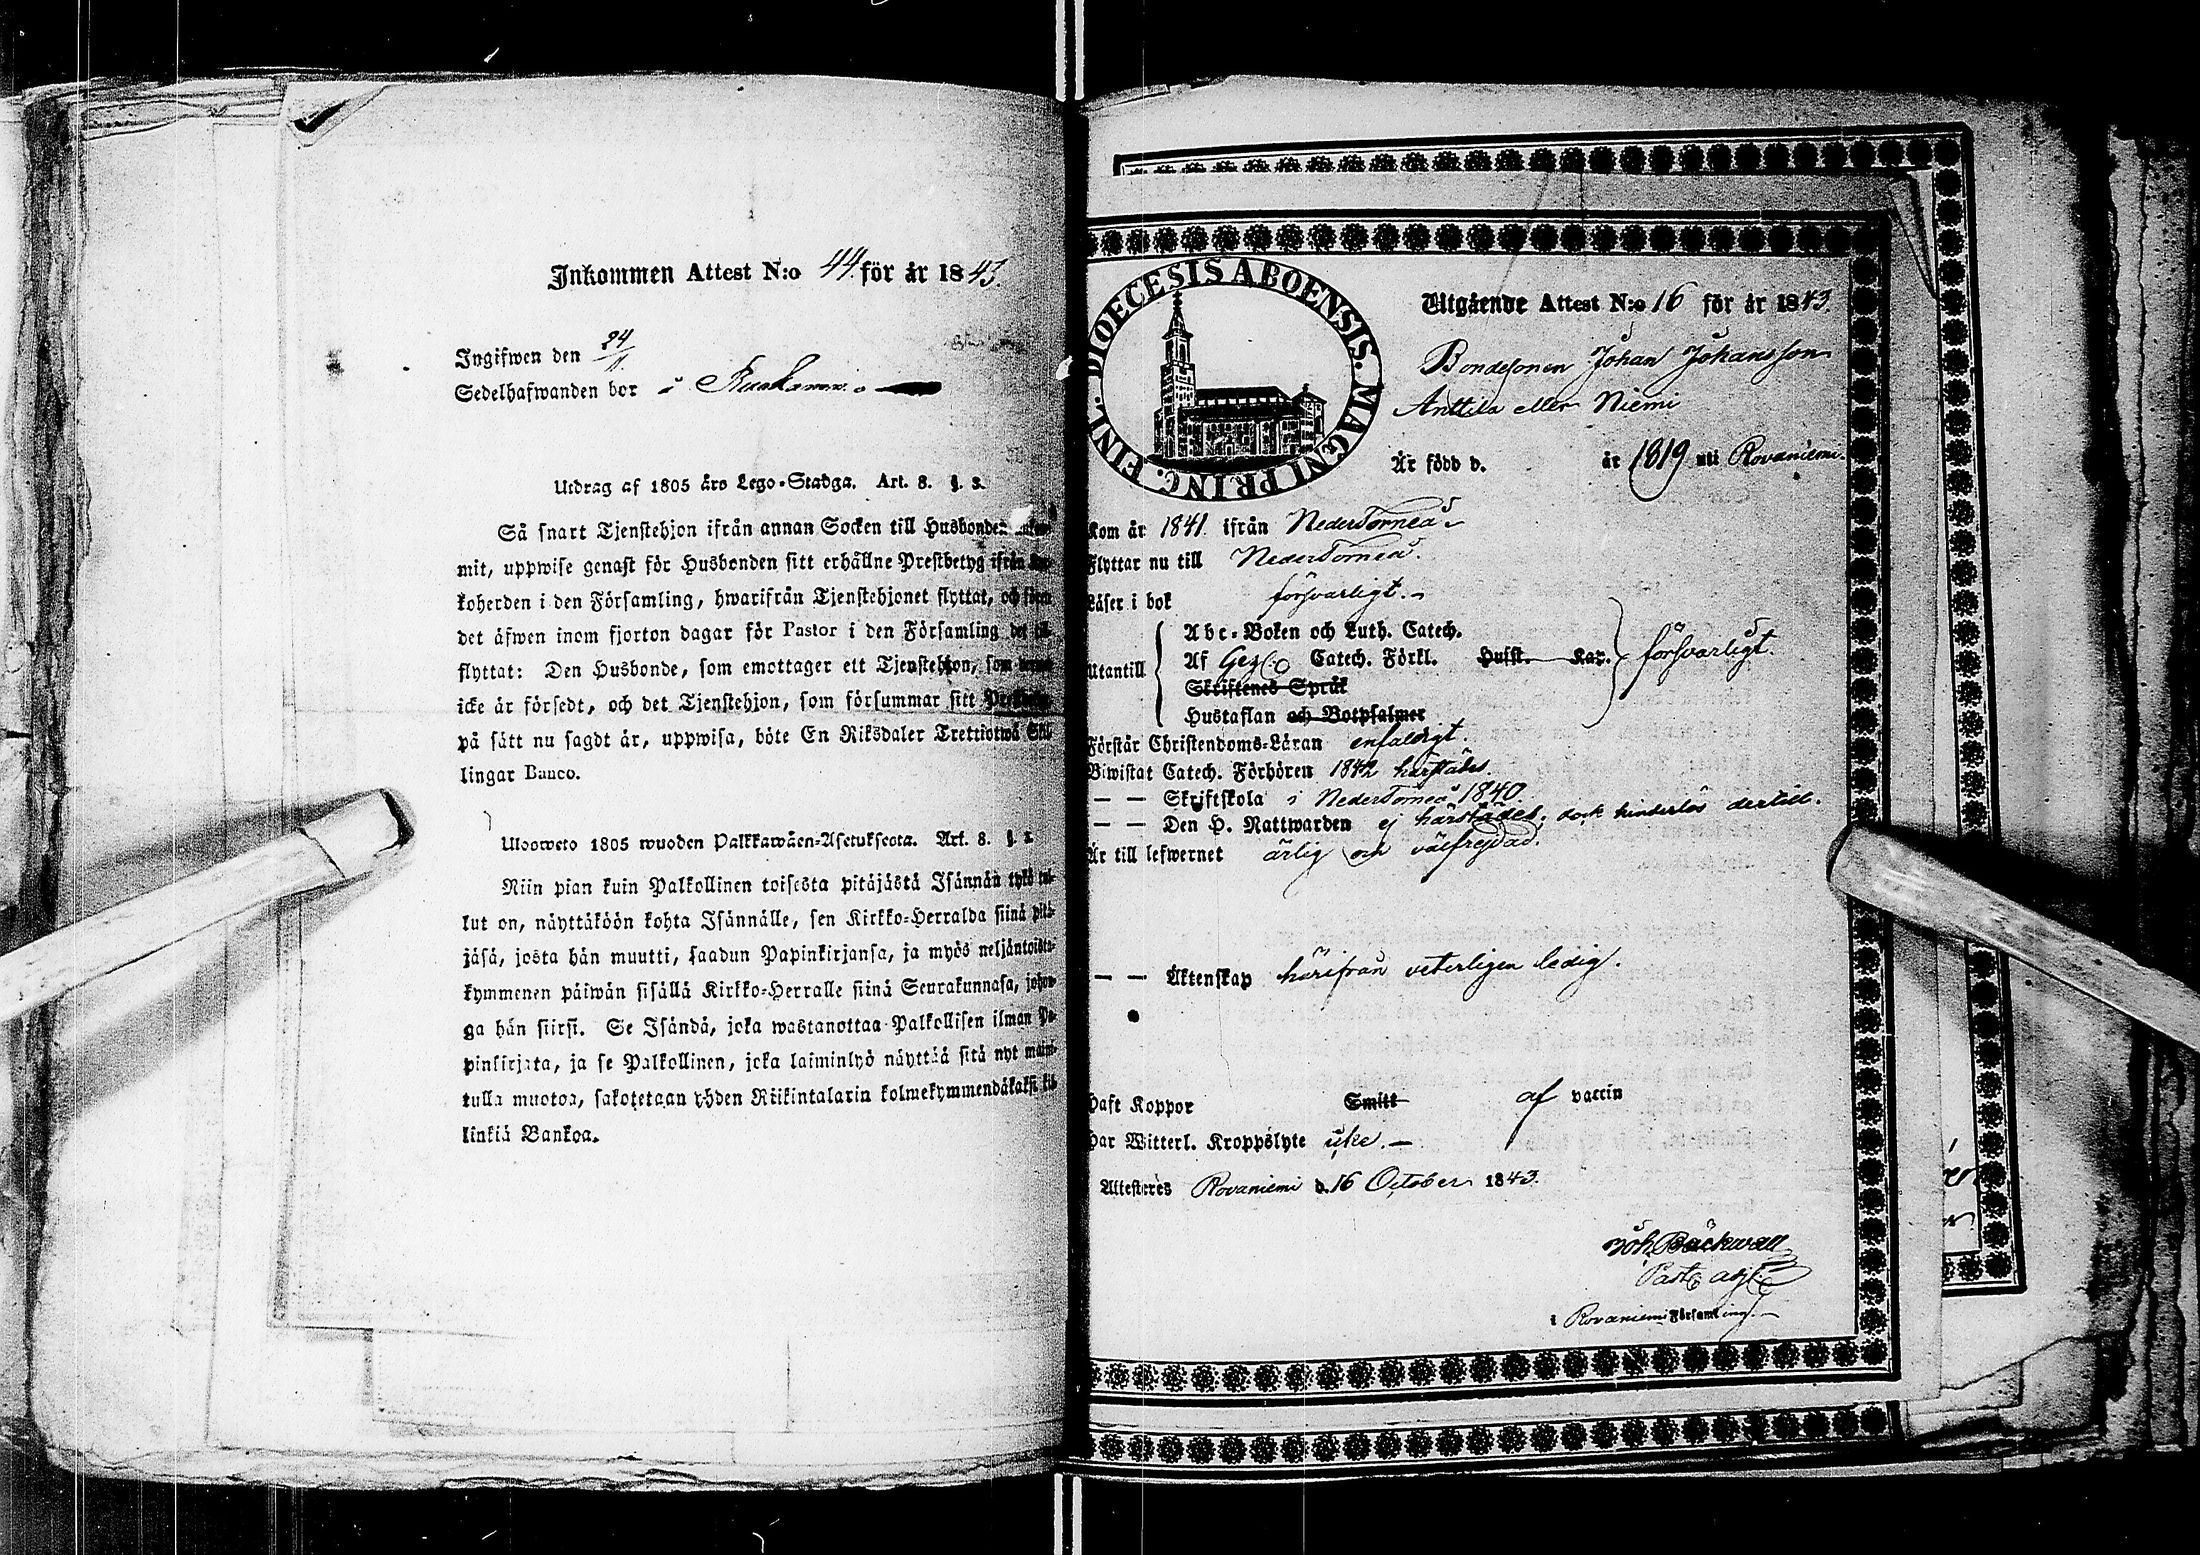 Inkommen Attest N:o 44. för år 1843.
Ingifwen den 24/11
Sedelhafwanden bor i
Utdrag af 1805 års Lego-Stadga. Art. 8. §. 3.
Så snart Tjenstehjon ifrån annan Socken till Husbonden
mit, uppwise genast för Husbonden sitt erhållne Prestbetyg ifrån
koherden i den Församling, hwarifrån Tjenstehjonet flyttat, och
det äfwen inom fjorton dagar för Pastor i den Församling det
flyttat: Den Husbonde, som emottager ett Tjenstehjon, som
icke är försedt, och det Tjenstehjon, som försummar sitt
på sätt nu sagdt är, uppwisa, böte En Riksdaler Trettiotwå Skil-
lingar Banco.
Uloosweto 1805 wuoden Palkkawäen-Asetuksesta. Art. 8. §. 3.
Niin pian kuin Palkollinen toisesta pitäjästä Isännän tykö tul-
lut on, näyttäköön kohta Isännälle, sen Kirkko-Herralda siinä pitä-
jäsä, josta hän muutti, saadun Papinkirjansa, ja myös neljäntoista-
kymmenen päiwän sisällä Kirkko-Herralle siinä Seurakunnasa, johon-
ga hän siirsi. Se Isändä, joka wastanottaa Palkollisen ilman Pa-
pinkirjata, ja se Palkollinen, joka laiminlyö näyttää sitä nyt maini-
tulla muotoa, sakotetaan yhden Riikintalarin kolmekymmendäkaksi kil-
linkiä Bankoa.
DIOECESIS ABOENSIS. MAGNI PRINC. FINL.
Utgående Attest N:o 16 för år 1843.
Bondesonen Johan Johansson
Anttila eller Niemi
Är född d. år 1819 uti Rovaniemi.
Kom år 1841. ifrån NederTorneå
Flyttar nu till NederTorneå.
Läser i bok försvarligt.
Utantill
Abc-Boken och Luth. Catech.
Af Gez:o Catech. Förkl. Husst. Kap. försvarligt.
Skriftenes Språk
Hustaflan och Botpsalmer
Förstår Christendoms-Läran enfaldigt.
Biwistat Catech. Förhören 1842 härstädes.
— — Skriftskola i NederTorneå 1840.
— — Den H. Nattwarden ej härstädes, dock hinderlös dertill.
Är till lefwernet ärlig och välfrejdad.
— — Äktenskap härifrån veterligen ledig.
Haft Koppor Smitt af vaccin
Har Witterl. Kroppslyte icke. —
Attesteres Rovaniemi d. 16 October 1843.
Joh. Bäckwall
Past. adj.
i Rovaniemi Församling.